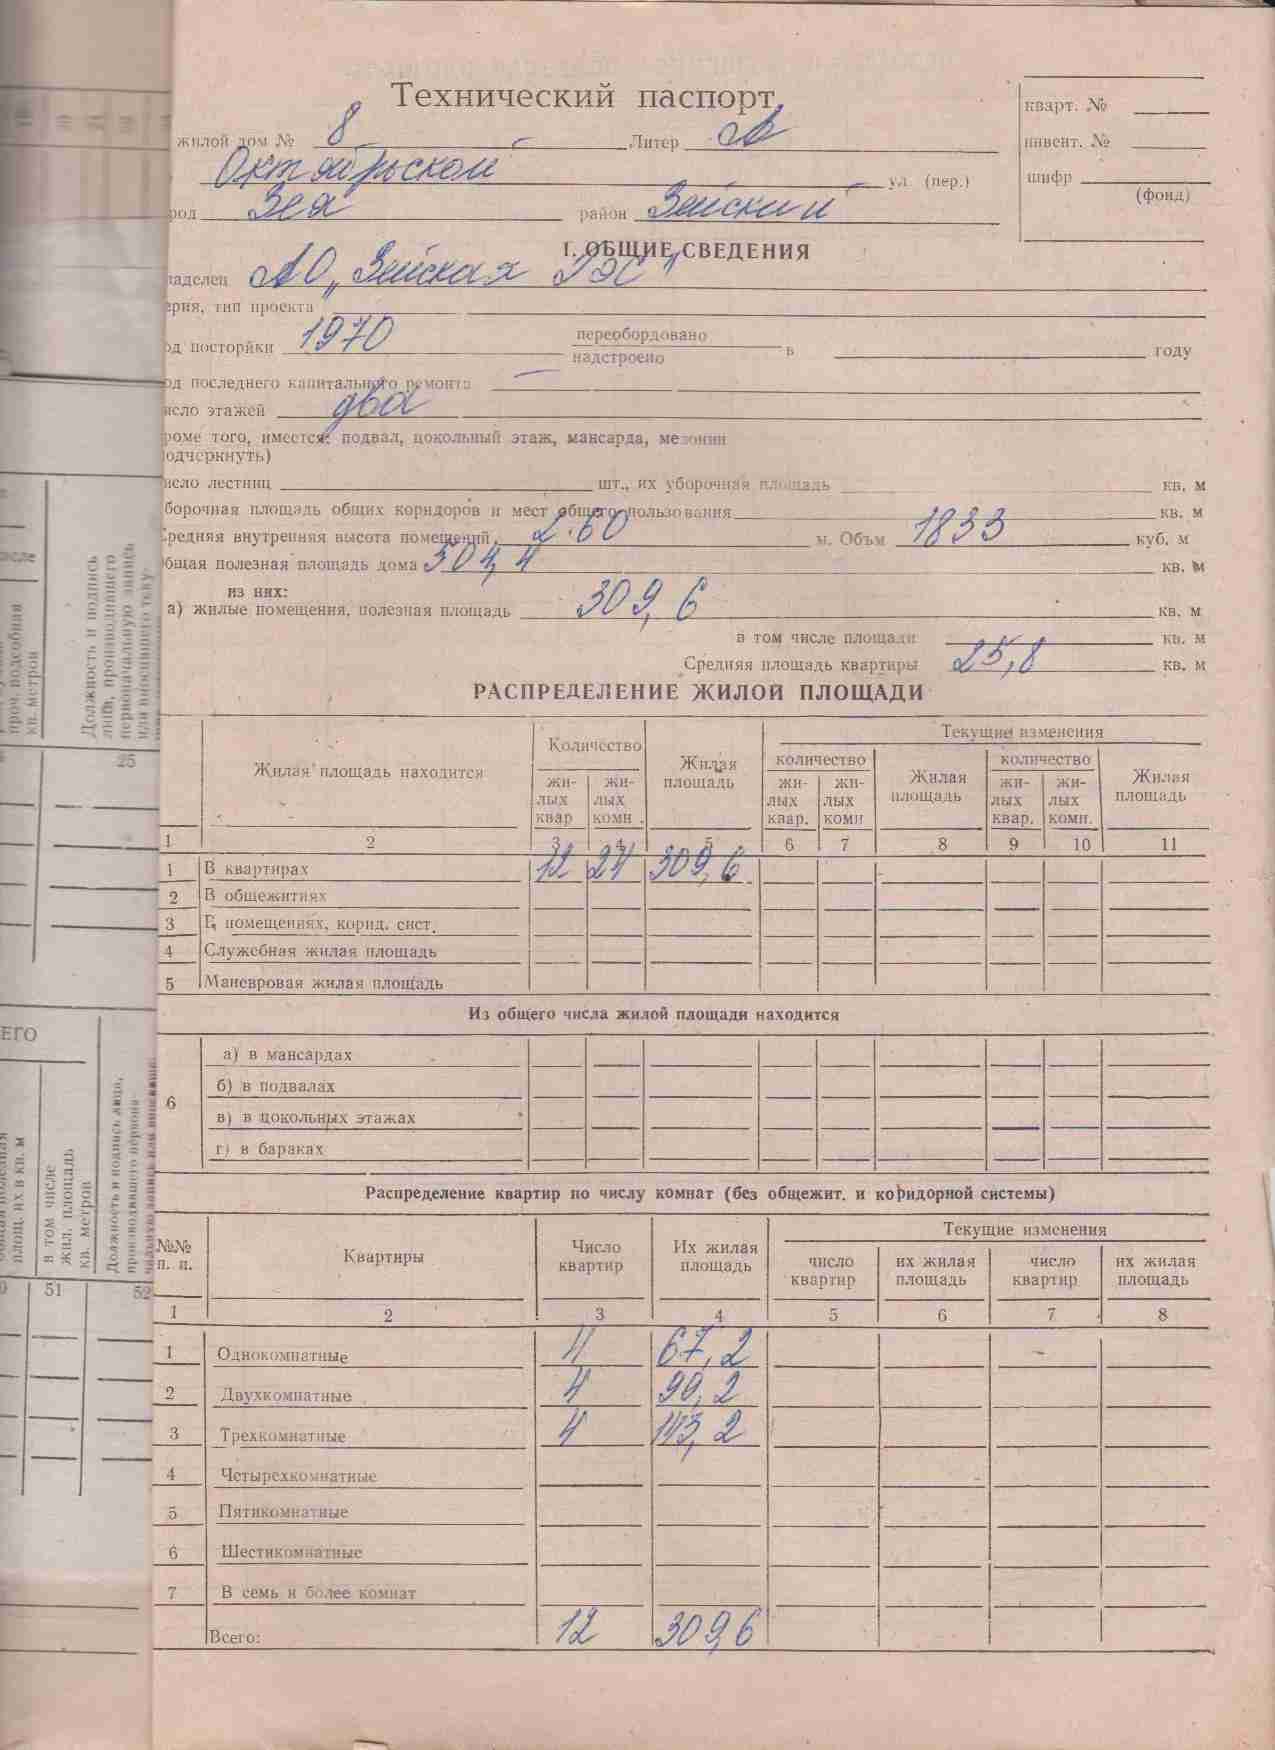 Технический паспорт
кварт. №
жилой дом № 8 Литер А
инвент. №
Октябрьской ул. (пер.)
шифр
(фонд)
род Зея район Зейский
I. ОБЩИЕ СВЕДЕНИЯ
ладелец АО „Зейская ГЭС"
ерия, тип проекта
од посторйки 1970 переобордовано
надстроено в году
од последнего капитального ремонта
исло этажей два
роме того, имеется: подвал, цокольный этаж, мансарда, мезонин
подчеркнуть)
исло лестниц шт., их уборочная площадь кв. м
борочная площадь общих коридоров и мест общего пользования кв. м
Средняя внутренняя высота помещений 2.60 м. Объм 1833 куб. м
бщая полезная площадь дома 504,4 кв. м
из них:
а) жилые помещения, полезная площадь 309,6 кв. м
в том числе площади кв. м
Средняя площадь квартиры 25,8 кв. м
РАСПРЕДЕЛЕНИЕ ЖИЛОЙ ПЛОЩАДИ
Жилая площадь находится
Количество
жи-
лых
квар
жи-
лых
комн.
Жилая
площадь
Текущие изменения
количество
жи-
лых
квар.
жи-
лых
комн
Жилая
площадь
количество
жи-
лых
квар.
жи-
лых
комн.
Жилая
площадь
1 2 3 4 5 6 7 8 9 10 11
1 В квартирах 12 24 309,6
2 В общежитиях
3 В помещениях, корид. сист.
4 Служебная жилая площадь
5 Маневровая жилая площадь
Из общего числа жилой площади находится
6
а) в мансардах
б) в подвалах
в) в цокольных этажах
г) в бараках
Распределение квартир по числу комнат (без общежит. и коридорной системы)
№№
п. п.
Квартиры
Число
квартир
Их жилая
площадь
Текущие изменения
число
квартир
их жилая
площадь
число
квартир
их жилая
площадь
1 2 3 4 5 6 7 8
1 Однокомнатные 4 67,2
2 Двухкомнатные 4 99,2
3 Трехкомнатные 4 143,2
4 Четырехкомнатные
5 Пятикомнатные
6 Шестикомнатные
7 В семь и более комнат
Всего: 12 309,6
проч. подсобная
кв. метров
Должность и подпись
лица, производившего
первоначальную запись
или вносившего теку-
25
ЕГО
площ. их в кв. м
в том числе
жил. площадь
кв. метров
Должность и подпись лица,
производившего первона-
51
52